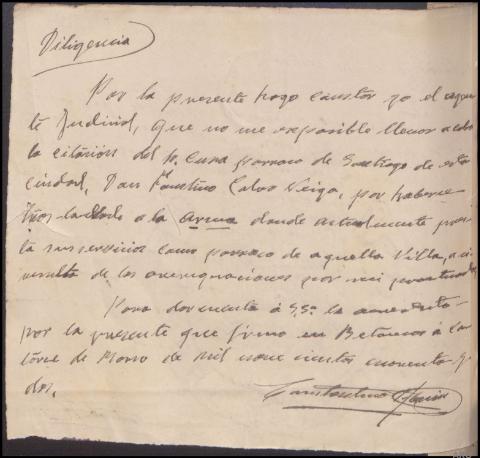 Diligencia
Por la presente hago constar yo el agen-
te Judicial, que no me es posible llevar a cabo
la citación del Sr. Cura párroco de Santiago de esta
ciudad, Don Faustino Calvo Veiga, por haberse
trasladado a la donde actualmente pres-
ta sus servicios como párroco de aquella Villa,
resulta de las averiguaciones por mi practicadas
Para dar cuenta á S.Sª la
por la presente que firmo en Betanzos á ca-
torce de Marzo de mil nove cientos cuarenta y
dos.